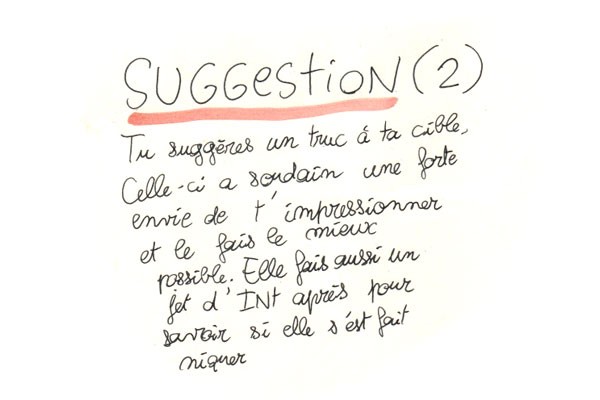 SUGGestiON (2)
Tu suggères un truc à ta cible.
Celle-ci a soudain une forte
envie de t'impressionner
et le fais le mieux
possible. Elle fais aussi un
jet d'INt après pour
savoir si elle s'est fait
niquer